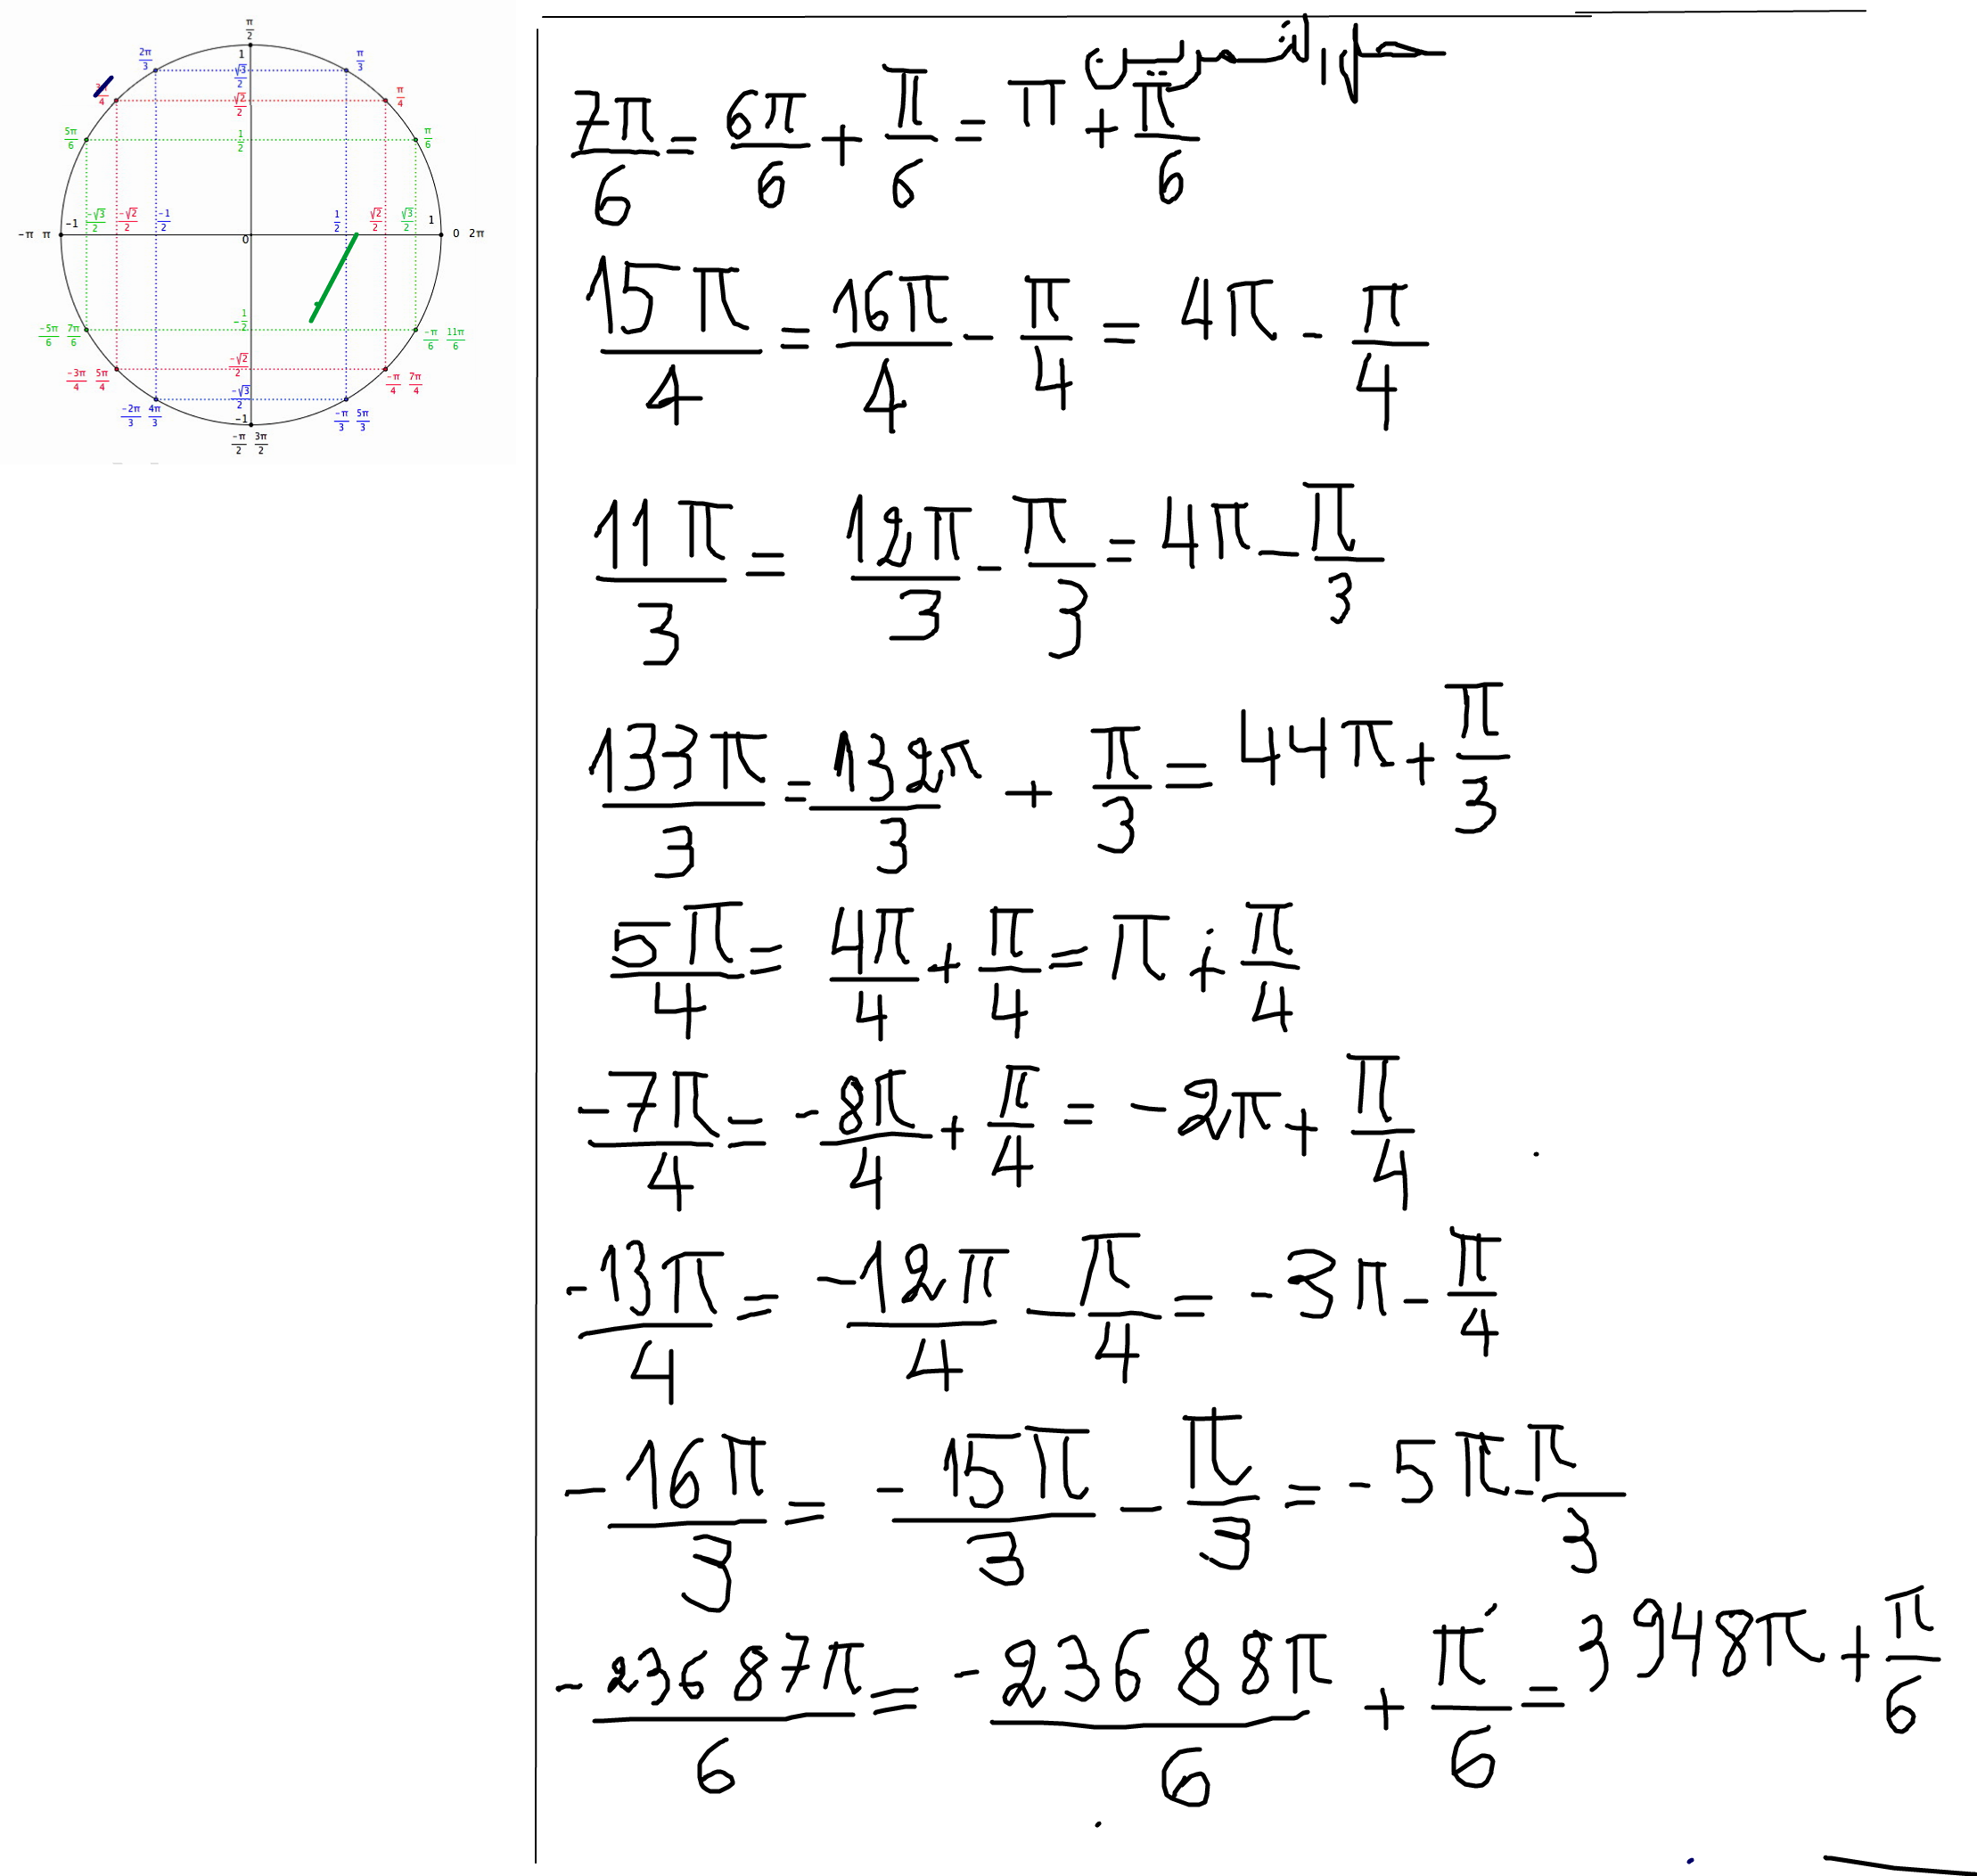 π/2
2π/3 1 π/3
√3/2
3π/4 √2/2 π/4
5π/6 1/2 π/6
-1 -√3/2 -√2/2 -1/2 1/2 √2/2 √3/2 1
-π π 0 0 2π
-5π/6 7π/6 -1/2 -π/6 11π/6
-3π/4 5π/4 -√2/2 -π/4 7π/4
-√3/2
-2π/3 4π/3 -1 -π/3 5π/3
-π/2 3π/2
حل التمرين
7π/6 = 6π/6 + π/6 = π + π/6
15π/4 = 16π/4 - π/4 = 4π - π/4
11π/3 = 12π/3 - π/3 = 4π - π/3
133π/3 = 132π/3 + π/3 = 44π + π/3
5π/4 = 4π/4 + π/4 = π + π/4
-7π/4 = -8π/4 + π/4 = -2π + π/4
-13π/4 = -12π/4 - π/4 = -3π - π/4
-16π/3 = -15π/3 - π/3 = -5π - π/3
-23687π/6 = -23688π/6 + π/6 = 3948π + π/6